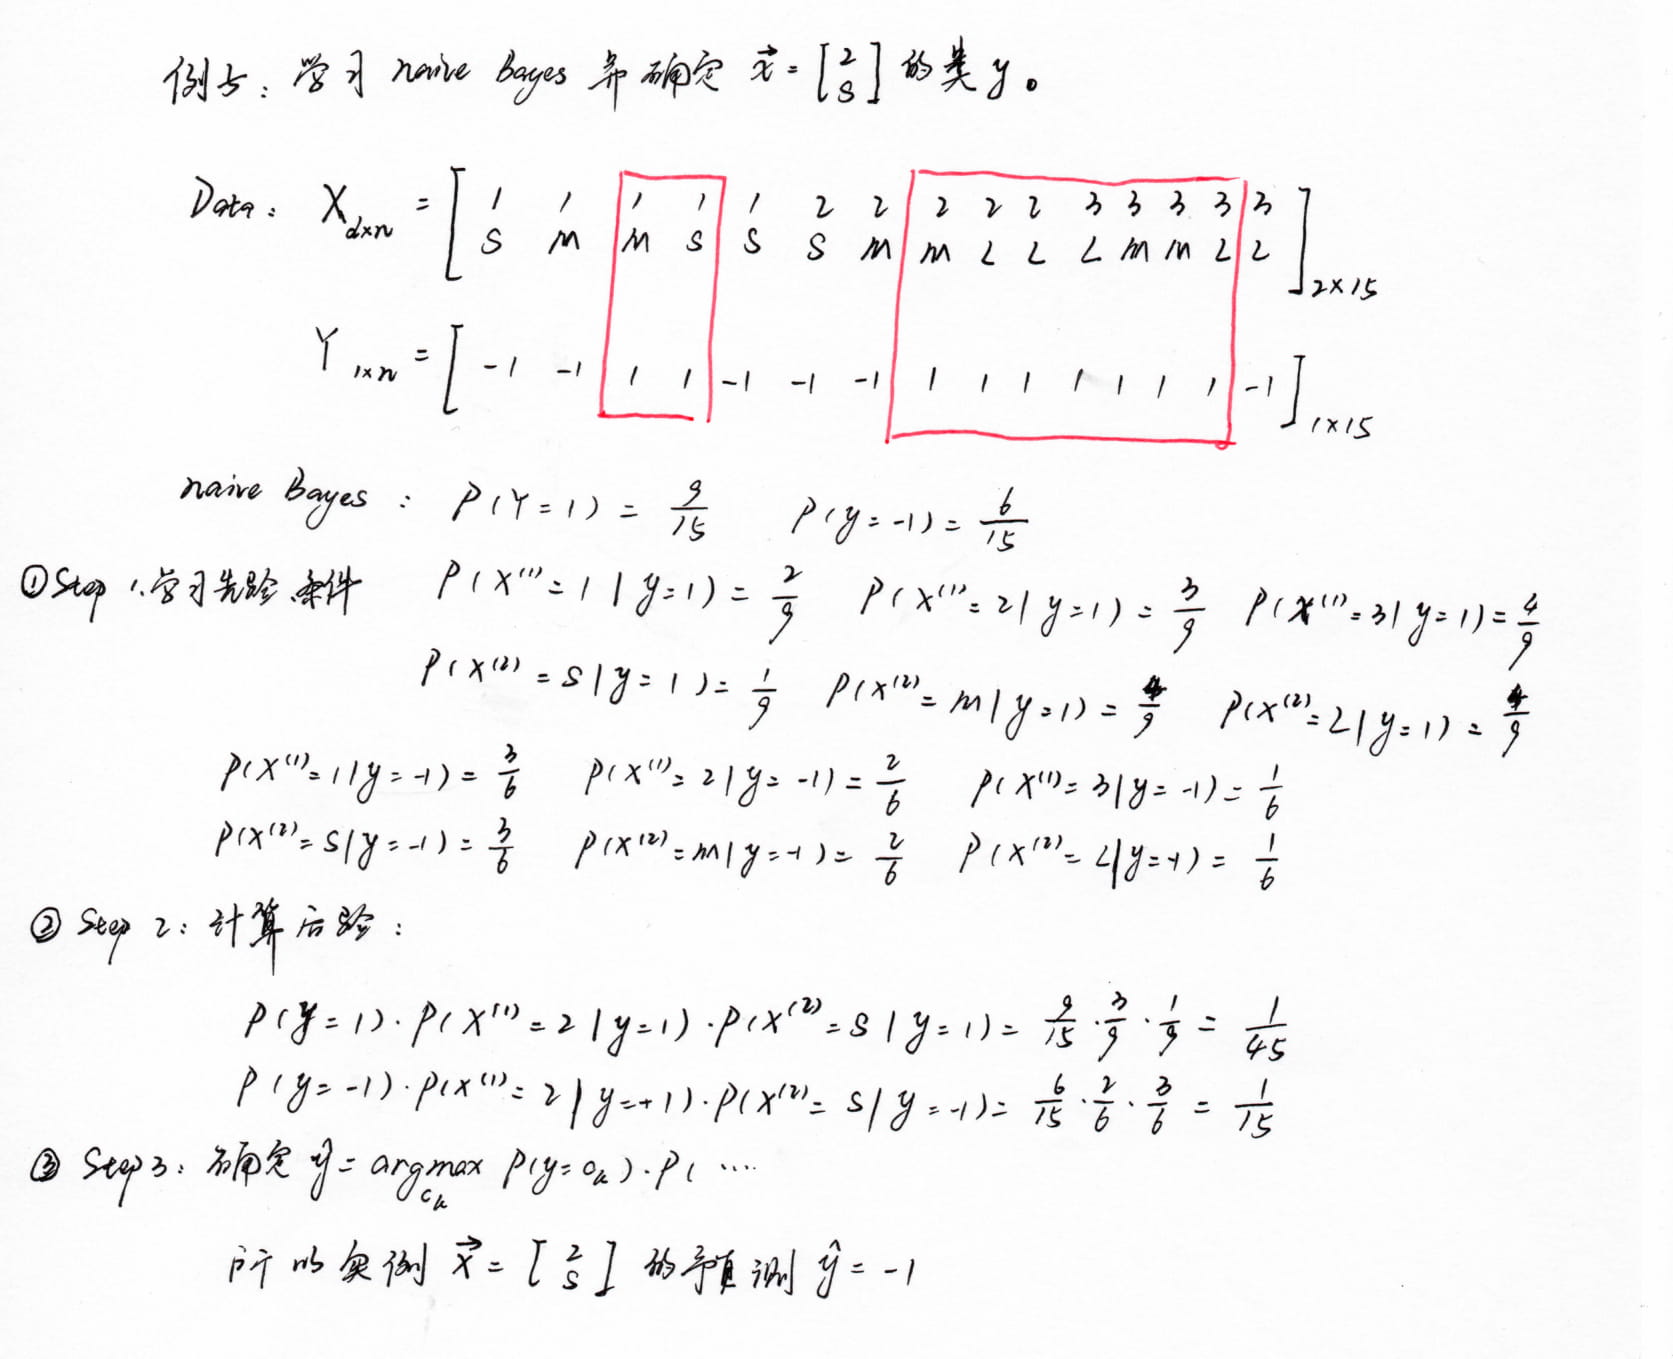 例子：学习 naive Bayes 并确定 x⃗ = [2 S] 的类 y。
Data: X d×n = [ 1 1 1 1 1 2 2 2 2 2 3 3 3 3 3
S M M S S S M M L L L M M L L ] 2×15
Y 1×n = [ -1 -1 1 1 -1 -1 -1 1 1 1 1 1 1 1 -1 ] 1×15
naive Bayes : P(Y=1) = 9/15 P(y=-1) = 6/15
① Step 1. 学习先验、条件 P(X⁽¹⁾=1|y=1) = 2/9 P(X⁽¹⁾=2|y=1) = 3/9 P(X⁽¹⁾=3|y=1) = 4/9
P(X⁽²⁾=S|y=1) = 1/9 P(X⁽²⁾=m|y=1) = 4/9 P(X⁽²⁾=L|y=1) = 4/9
P(X⁽¹⁾=1|y=-1) = 3/6 P(X⁽¹⁾=2|y=-1) = 2/6 P(X⁽¹⁾=3|y=-1) = 1/6
P(X⁽²⁾=S|y=-1) = 3/6 P(X⁽²⁾=m|y=-1) = 2/6 P(X⁽²⁾=L|y=-1) = 1/6
② Step 2: 计算后验:
P(y=1)·P(X⁽¹⁾=2|y=1)·P(X⁽²⁾=S|y=1) = 9/15·3/9·1/9 = 1/45
P(y=-1)·P(X⁽¹⁾=2|y=-1)·P(X⁽²⁾=S|y=-1) = 6/15·2/6·3/6 = 1/15
③ Step 3: 确定 ŷ = argmax P(y=cₖ)·P( ....
cₖ
所以实例 x⃗ = [2 S] 的预测 ŷ = -1